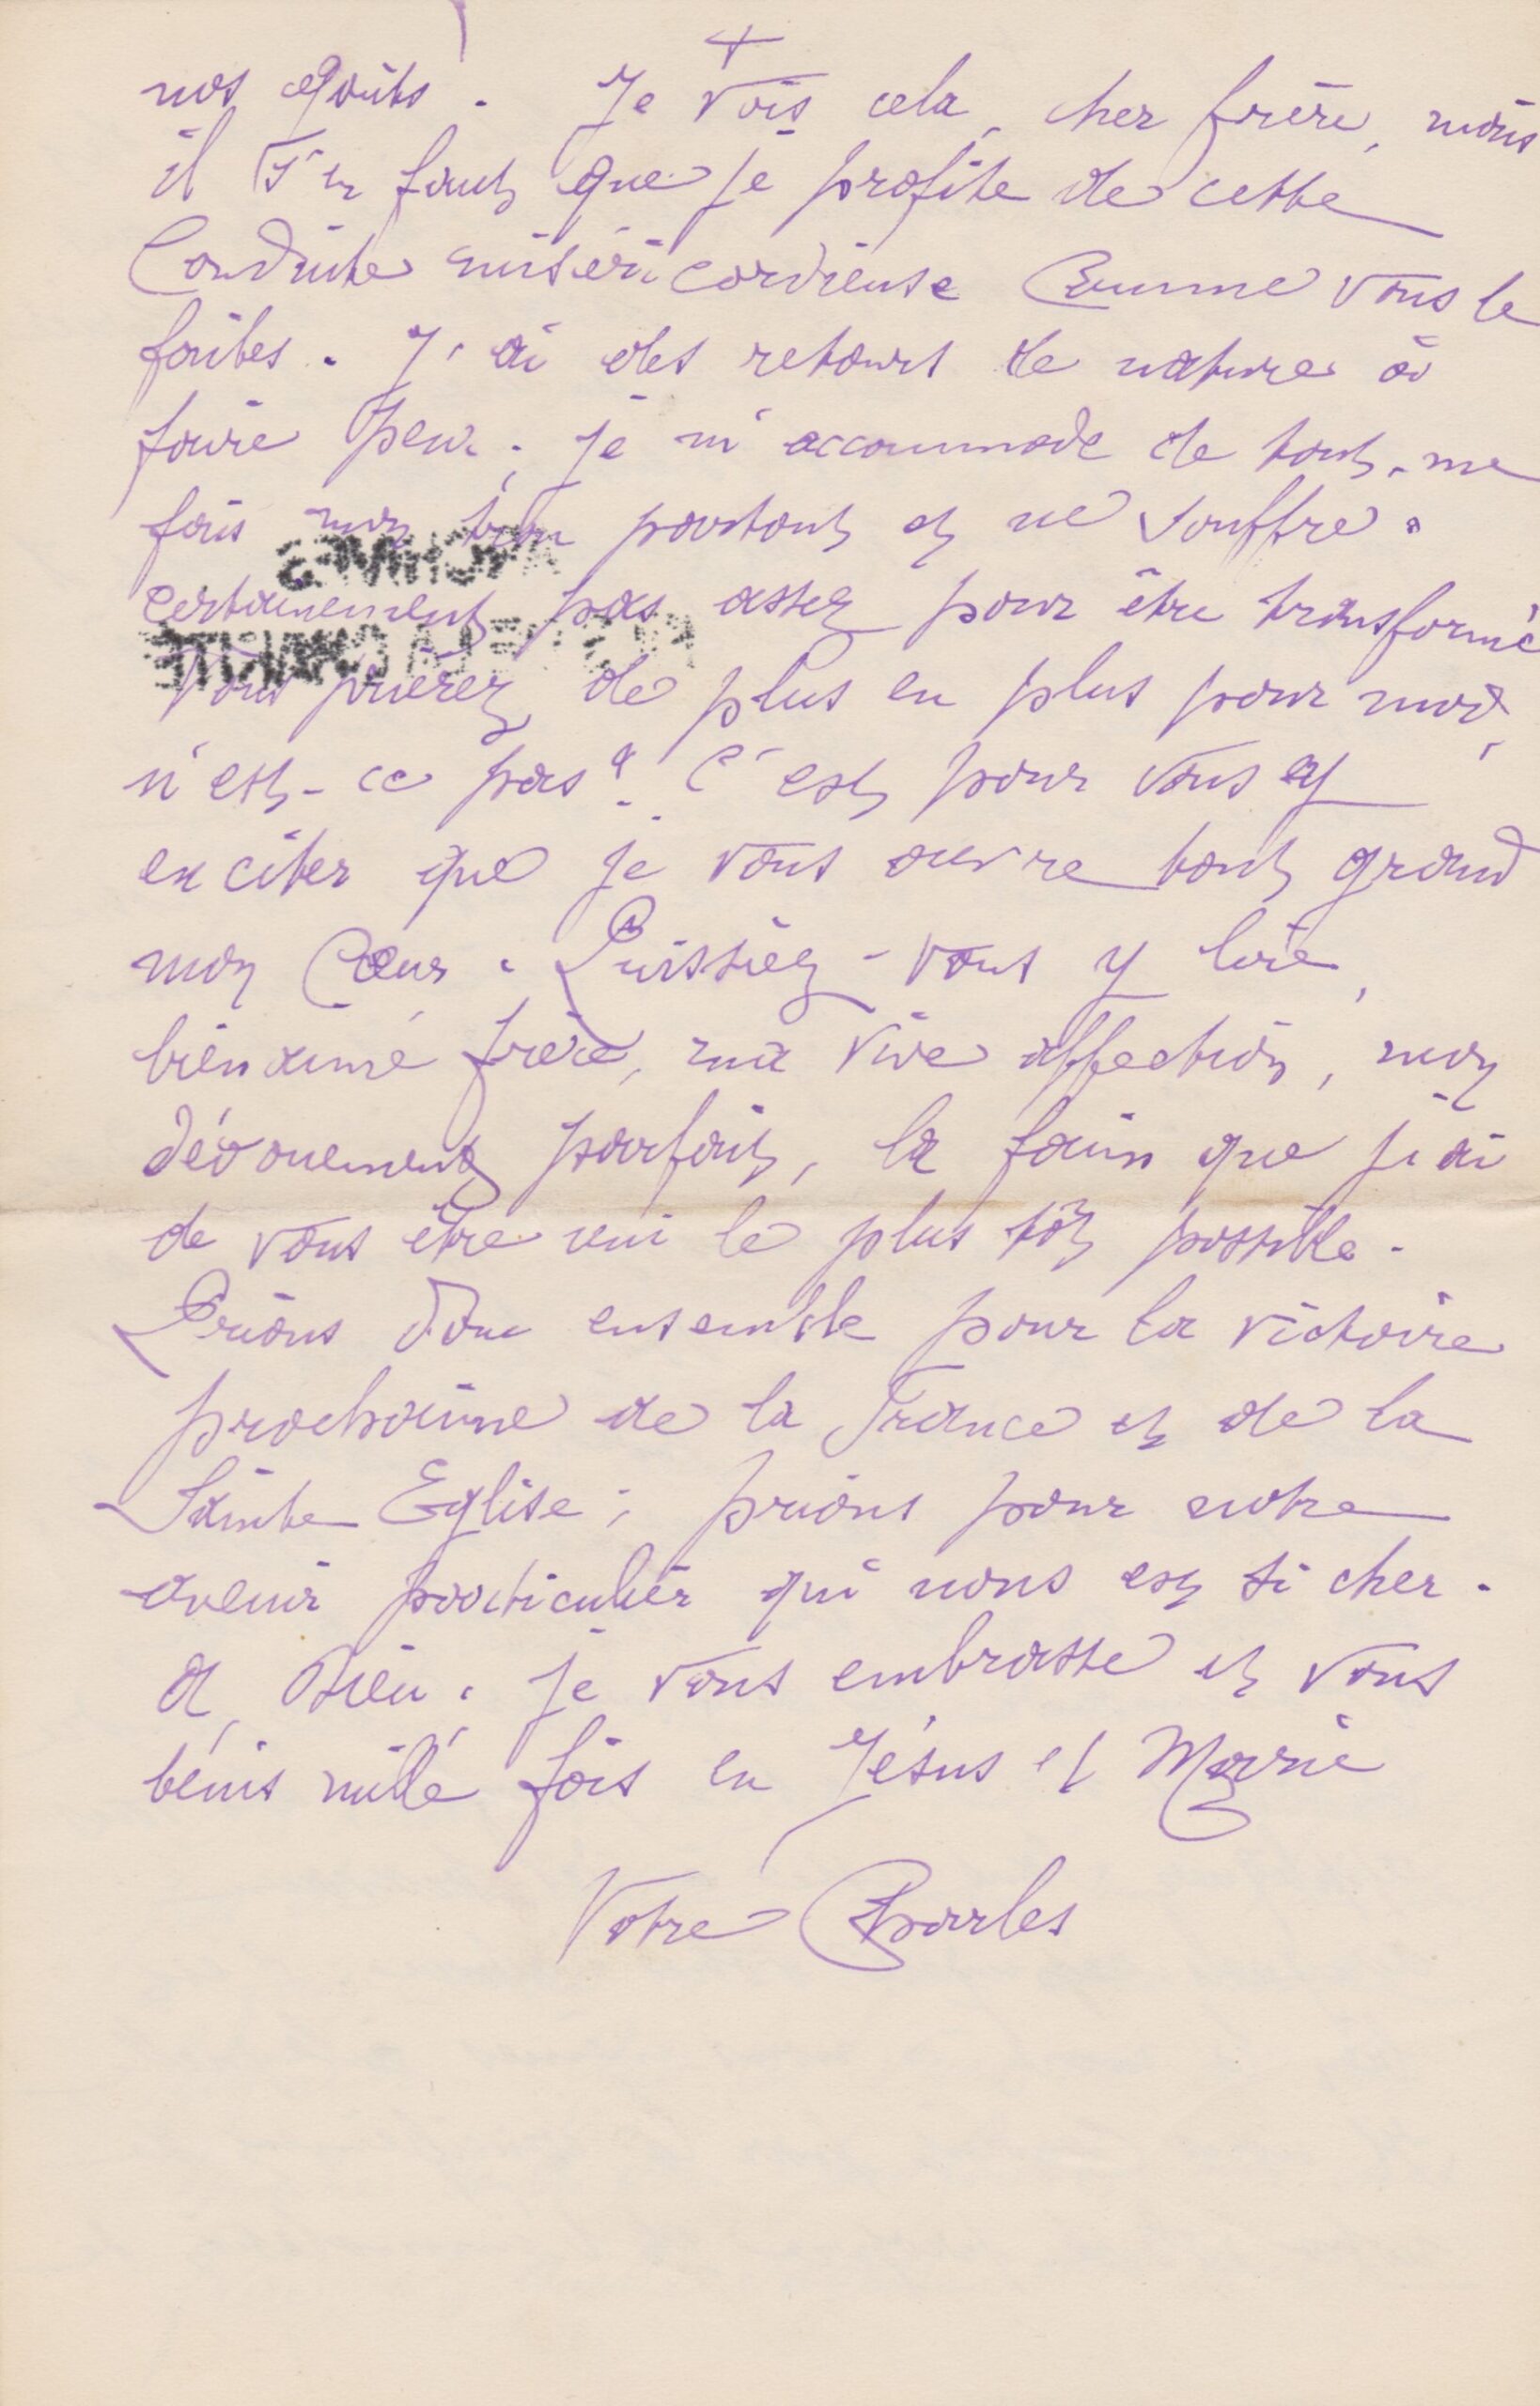 nos goûts. Je vois cela, cher frère, mais
il s'en faut que je profite de cette
Conduite miséricordieuse Comme vous le
faites. J'ai des retours de nature à
faire peur. je m'accommode de tout, me
fais mon bien partout et ne souffre
certainement pas assez pour être transformé
Vous prierez de plus en plus pour moi,
n'est-ce pas? C'est pour vous y
exciter que je vous ouvre tout grand
mon Cœur. Puissiez-vous y lire,
bien aimé frère, ma vive affection, mon
dévouement parfait, la faim que j'ai
de vous être uni le plus tôt possible.
Prions donc ensemble pour la victoire
prochaine de la France et de la
Sainte Eglise; prions pour notre
avenir particulier qui nous est si cher.
A Dieu. je vous embrasse et vous
bénis mille fois en Jésus et Marie
Votre Charles